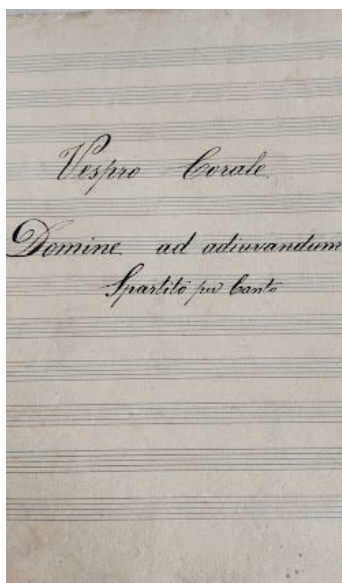 Vespro Corale
Domine ad adiuvandum
Spartito per Canto